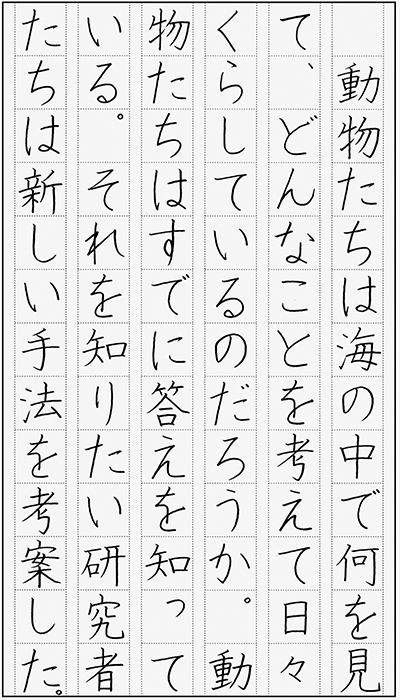 動物たちは海の中で何を見
て、どんなことを考えて日々
くらしているのだろうか。動
物たちはすでに答えを知って
いる。それを知りたい研究者
たちは新しい手法を考案した。